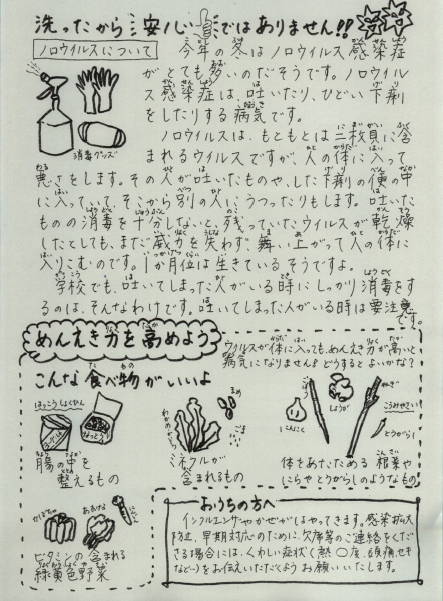 洗ったから安心ではありません!!
ノロウイルスについて
今年の冬はノロウイルス感染症
がとても多いのだそうです。ノロウイル
ス感染症は、吐いたり、ひどい下痢
をしたりする病気です。
ノロウイルスは、もともとは二枚貝に含
まれるウイルスですが、人の体に入って
消毒グッズ
悪さをします。その人が吐いたものや、した下痢の便の中
に入っていて、そこから別の人にうつったりもします。吐いた
ものの消毒を十分しないと、残っていたウイルスが乾燥
したとしても、まだ威力を失わず、舞い上がって人の体に
入りこむのです。1か月位は生きているそうですよ。
学校でも、吐いてしまった人がいる時にしっかり消毒をす
るのは、そんなわけです。吐いてしまった人がいる時は要注意
です。
めんえき力を高めよう
ウイルスが体に入っても、めんえき力が高いと
病気になりません!どうするとよいかな?
こんな食べ物がいいよ
はっこうしょくひん
ヨーグルト
なっとう
腸の中を
整えるもの
わかめ
まめ
ごま
ミネラルが
含まれるもの
にんにく
しょうが
ねぎ
こうみやさい
とうがらし
体をあたためる 根菜や
にらやとうがらしのようなもの
かぼちゃ
あおな
にんじん
ビタミンの含まれる
緑黄色野菜
おうちの方へ
インフルエンザやかぜがはやってきます。感染拡大
防止、早期対応のために、欠席等のご連絡をくだ
さる場合には、くわしい症状(熱〇度、頭痛、せき
など)をお伝えいただくようお願いいたします。